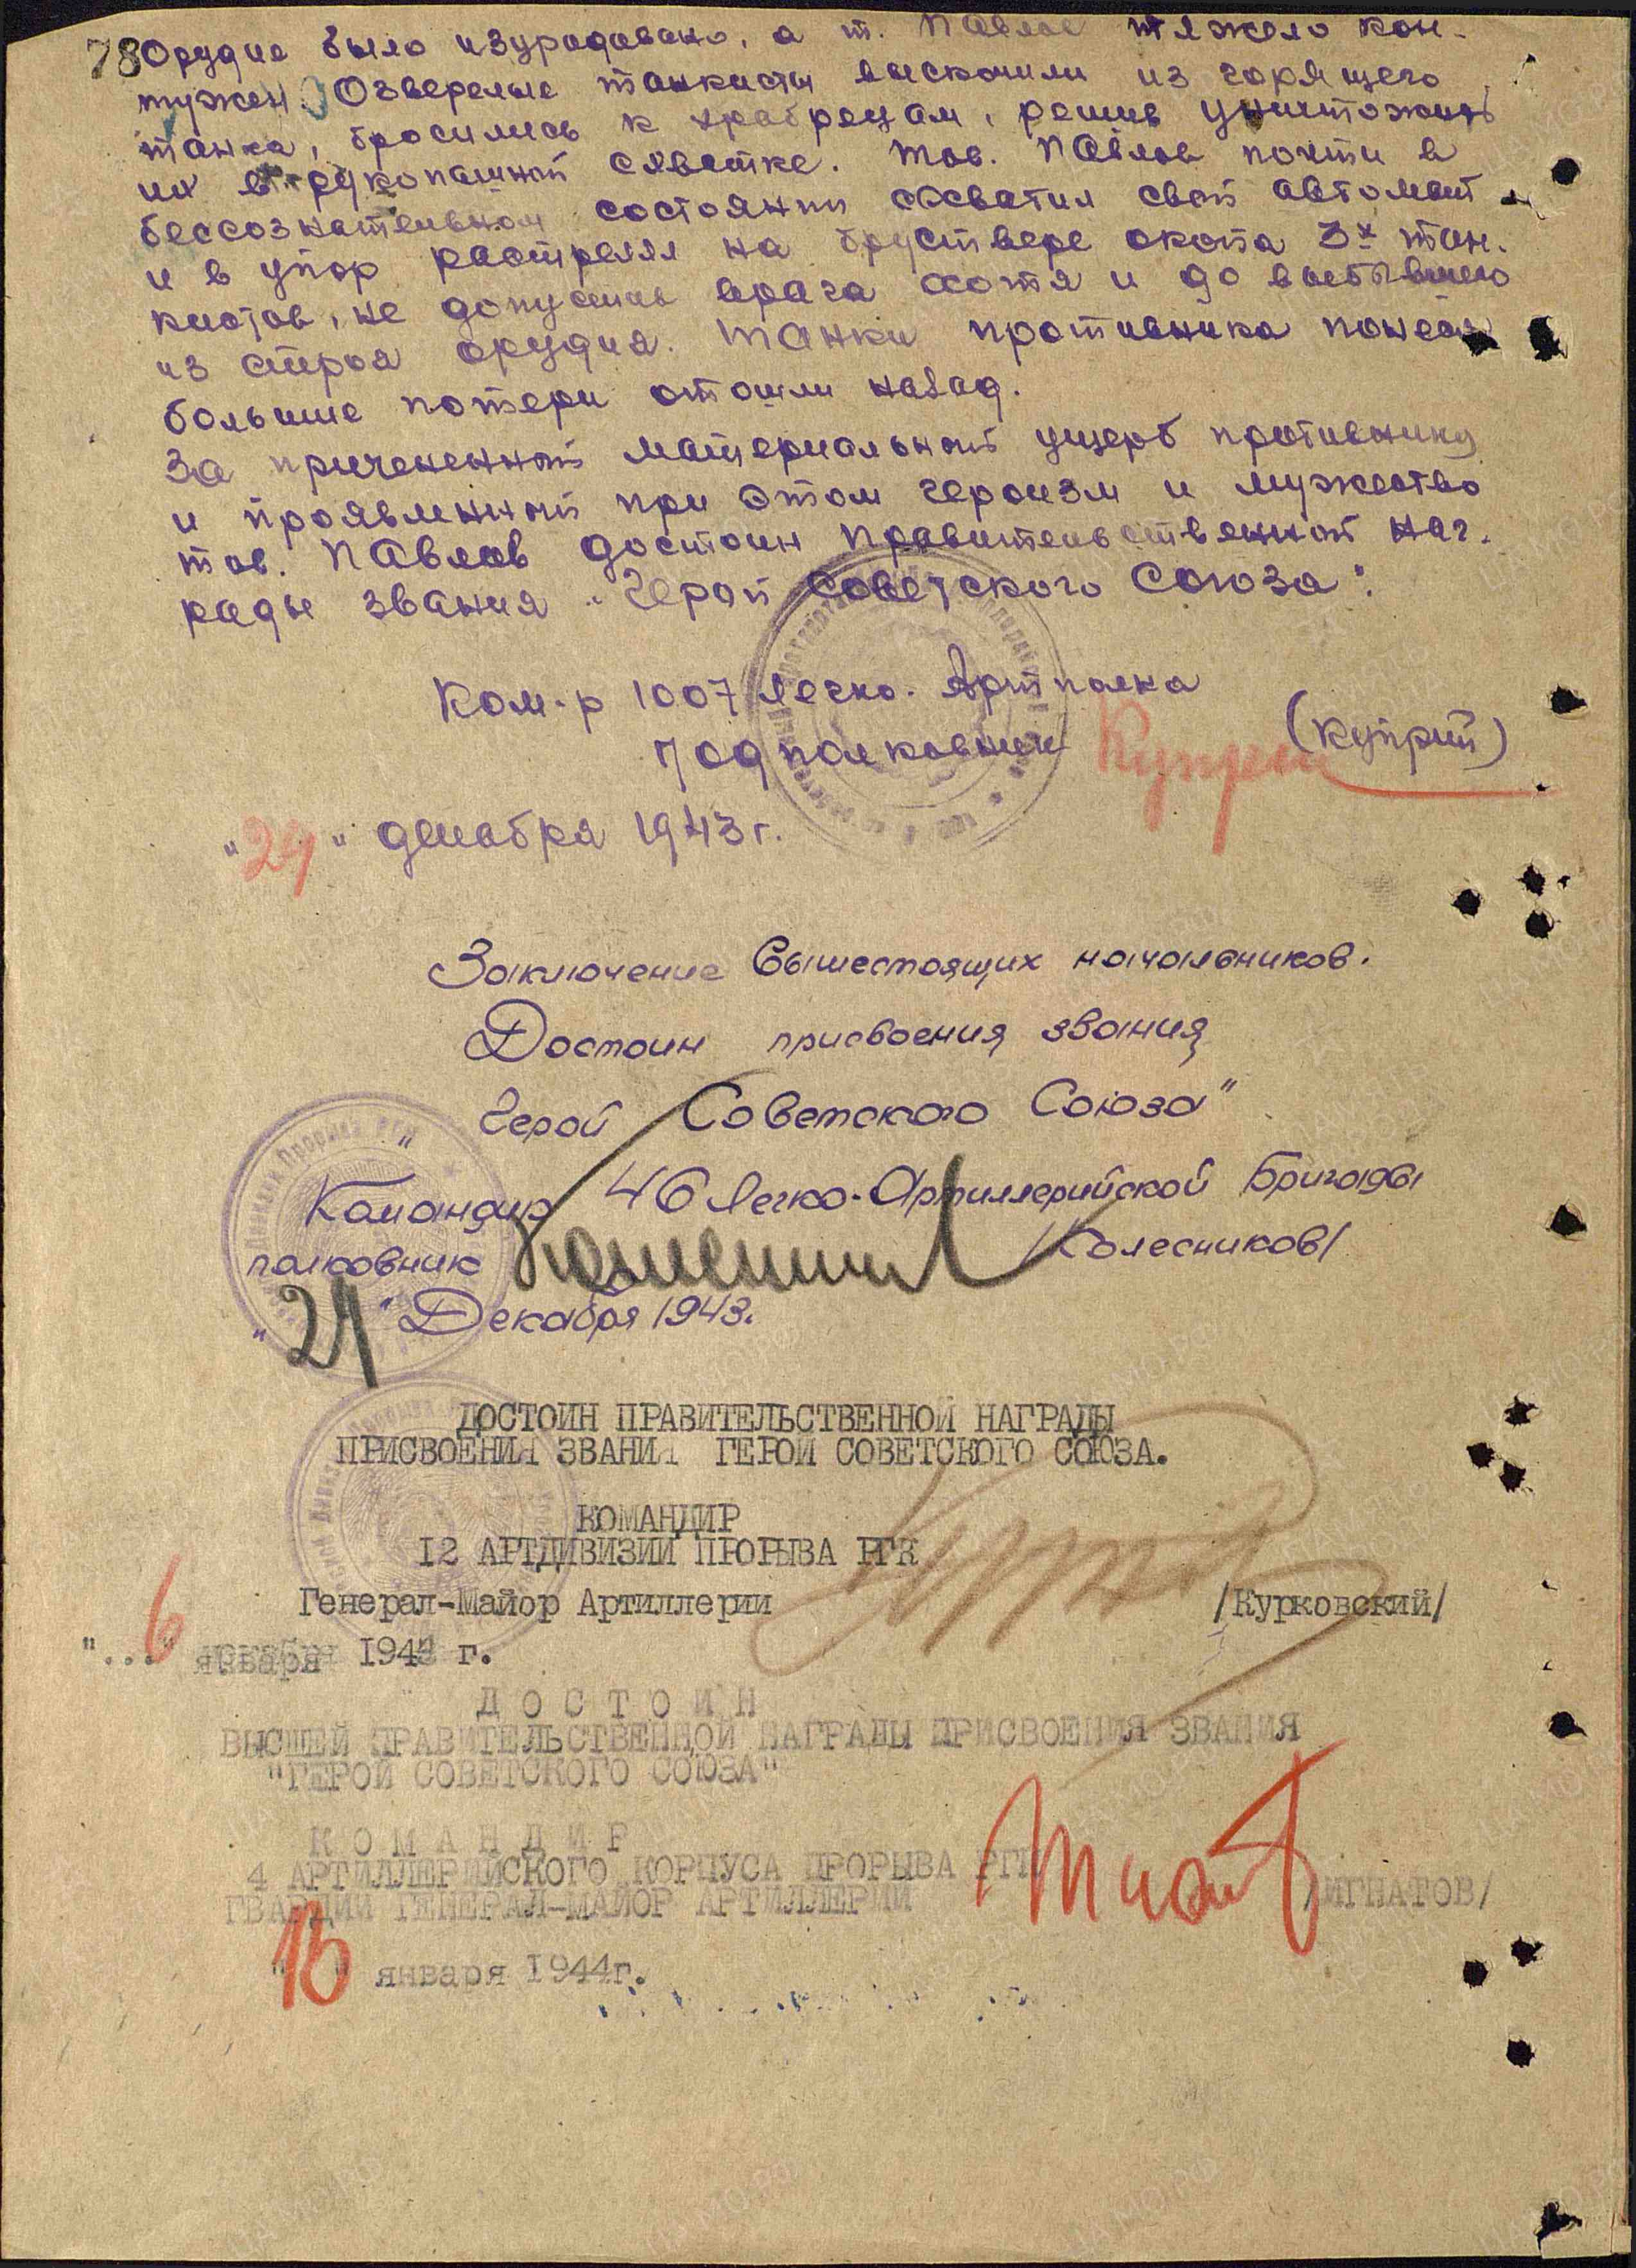 78 Орудие было изуродовано, а т. Павлов тяжело кон-
тужен. Озверелые танкисты выскочили из горящего
танка, бросились к храбрецам, решив уничтожить
их в рукопашной схватке. Тов. Павлов почти в
бессознательном состоянии схватил свой автомат
и в упор расстрелял на бруствере окопа 3х тан-
кистов, не допустив врага хотя и до выбывшего
из строя орудия. Танки противника понеся
большие потери отошли назад.
За причененный материальный ущерб противнику
и проявленный при этом героизм и мужество
тов. Павлов достоин правительственной наг-
рады звания "Герой Советского Союза".
Ком-р 1007 легко-Артполка
подполковник Куприй (Куприй)
"24" декабря 1943 г.
Заключение вышестоящих начальников.
Достоин присвоения звания
"Герой Советского Союза"
Командир 46 Легко-Артиллерийской Бригады
полковник /Колесников/
"24" Декабря 1943.
ДОСТОИН ПРАВИТЕЛЬСТВЕННОЙ НАГРАДЫ
ПРИСВОЕНИЯ ЗВАНИЯ ГЕРОЙ СОВЕТСКОГО СОЮЗА.
КОМАНДИР
12 АРТДИВИЗИИ ПРОРЫВА РГК
Генерал-Майор Артиллерии /Курковский/
"6" января 1944 г.
ДОСТОИН
ВЫСШЕЙ ПРАВИТЕЛЬСТВЕННОЙ НАГРАДЫ ПРИСВОЕНИЯ ЗВАНИЯ
"ГЕРОЙ СОВЕТСКОГО СОЮЗА"
КОМАНДИР
4 АРТИЛЛЕРИЙСКОГО КОРПУСА ПРОРЫВА РГК
ГВАРДИИ ГЕНЕРАЛ-МАЙОР АРТИЛЛЕРИИ /ИГНАТОВ/
января 1944г.